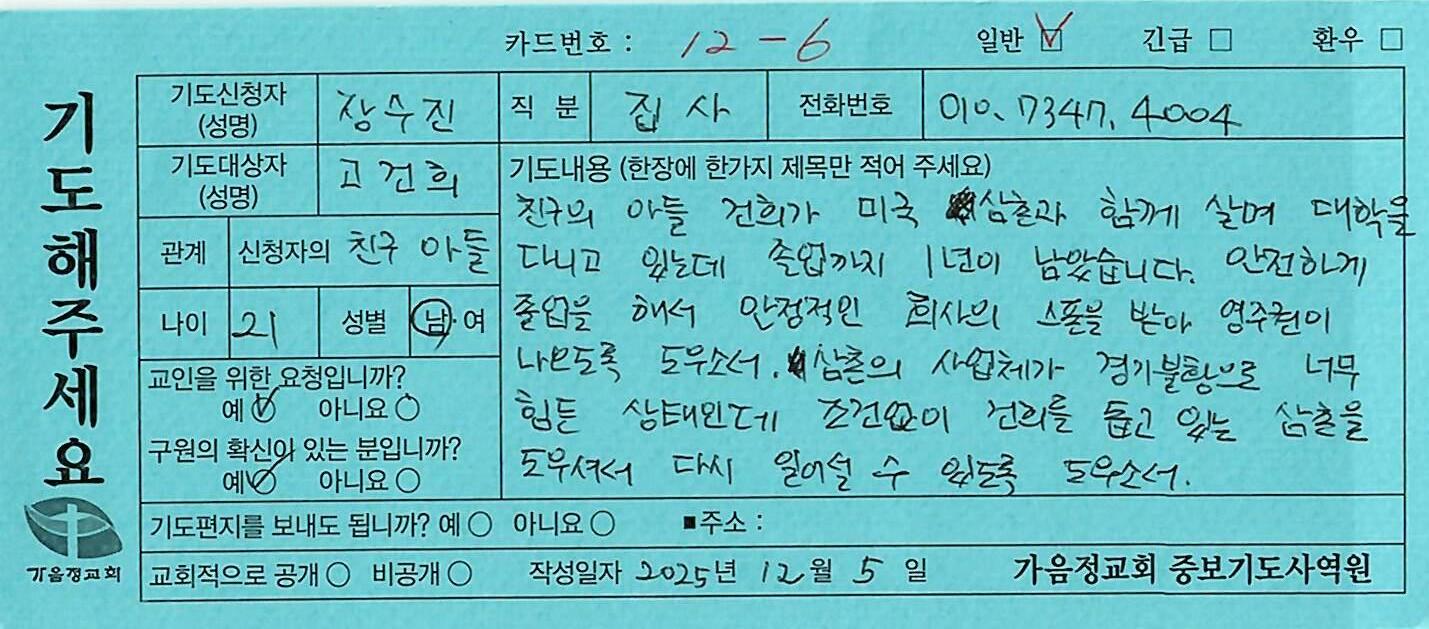 카드번호 : 12-6 일반 ☑ 긴급 □ 환우 □
기도해주세요
가음정교회
기도신청자 (성명) 장수진 직 분 집사 전화번호 010. 7347. 4004
기도대상자 (성명) 고건희
관계 신청자의 친구 아들
나이 21 성별 남·여
교인을 위한 요청입니까?
예 ☑ 아니요 ○
구원의 확신이 있는 분입니까?
예 ☑ 아니요 ○
기도내용 (한장에 한가지 제목만 적어 주세요)
친구의 아들 건희가 미국 삼촌과 함께 살며 대학을
다니고 있는데 졸업까지 1년이 남았습니다. 안전하게
졸업을 해서 안정적인 회사의 스폰을 받아 영주권이
나오도록 도우소서. 삼촌의 사업체가 경기불황으로 너무
힘든 상태인데 조건없이 건희를 돕고 있는 삼촌을
도우셔서 다시 일어설 수 있도록 도우소서.
기도편지를 보내도 됩니까? 예 ○ 아니요 ○ ■주소 :
교회적으로 공개 ○ 비공개 ○ 작성일자 2025년 12월 5일 가음정교회 중보기도사역원